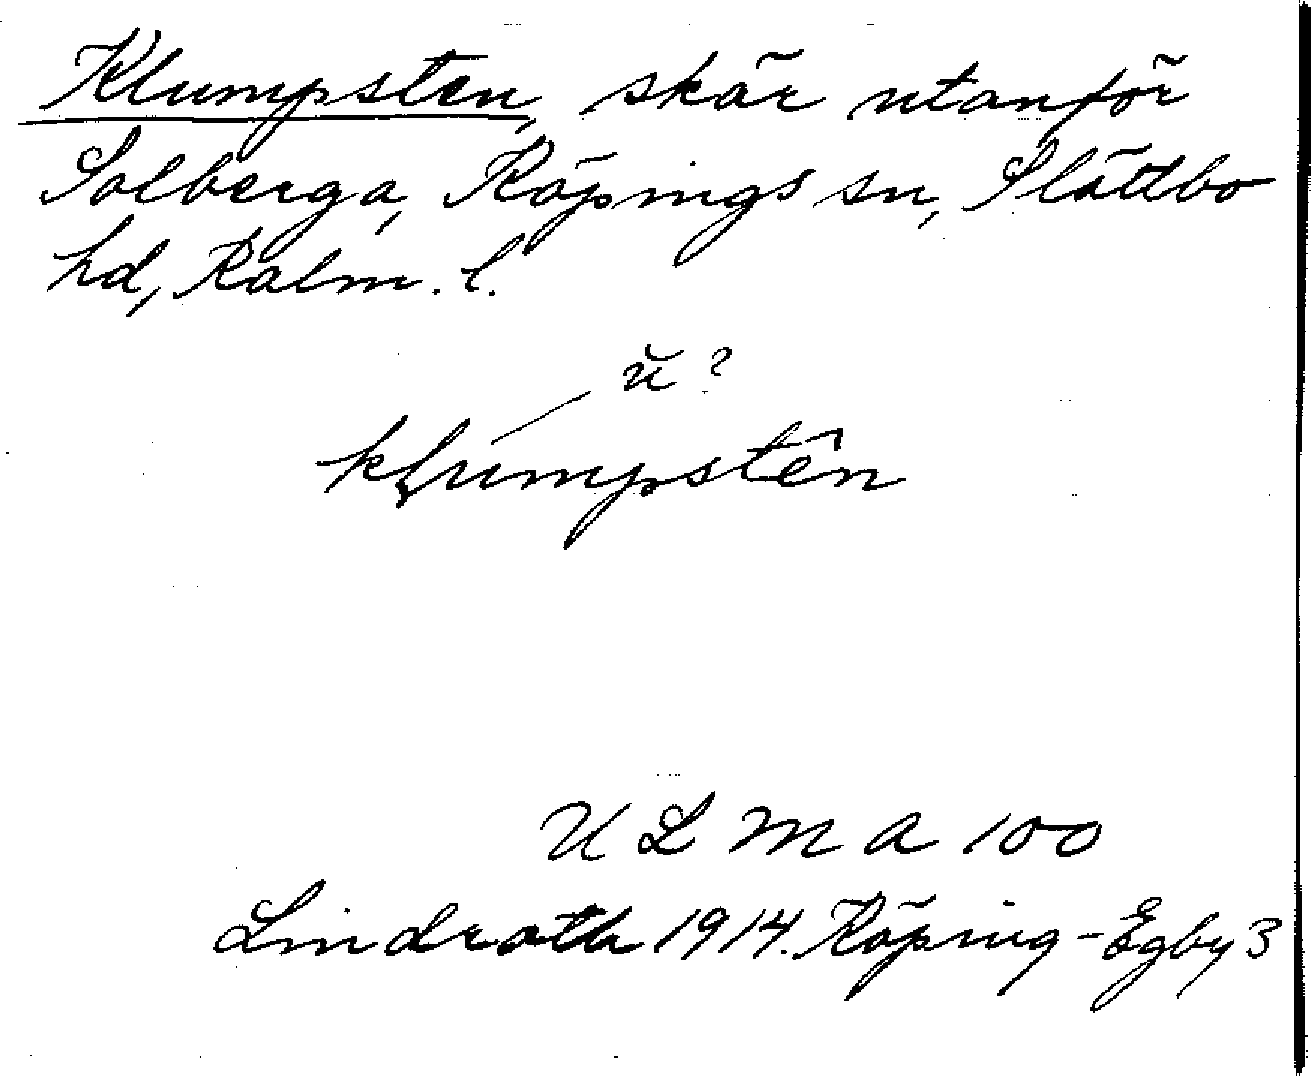 Klumpsten, skär utanför
Solberga, Köpings sn, Slättbo
hd, Kalm. l.
ŭ ?
klumpstên
U L M A 100
Lindroth 1914. Köping-Egby 3